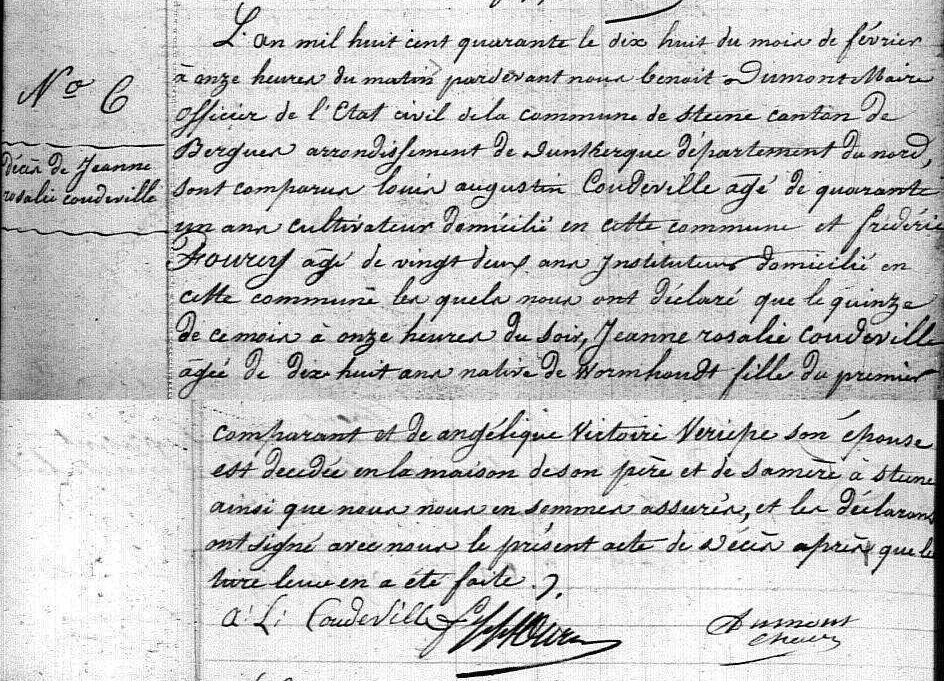 N.o 6
décès de Jeanne
rosalie coudeville
L'an mil huit cent quarante le dix huit du mois de février
à onze heures du matin pardevant nous benoit Dumont Maire
officier de l'Etat civil de la commune de steene canton de
Bergues arrondissement de Dunkerque département du nord,
sont comparus louis augustin Coudeville agé de quarante
un ans cultivateur domicilié en cette commune et frédéric
Fourey agé de vingt deux ans Instituteur domicilié en
cette commune les quels nous ont déclaré que le quinze
de ce mois à onze heures du soir, Jeanne rosalie coudeville
agée de dix huit ans native de Wormhoudt fille du premier
comparant et de angélique Victoire Veriepe son épouse
est decedée en la maison de son père et de sa mère à steene
ainsi que nous nous en sommes assurés, et les déclarans
ont signé avec nous le présent acte de décès après que le
ture leur en a été faite.
a: L: Coudeville
Dumont